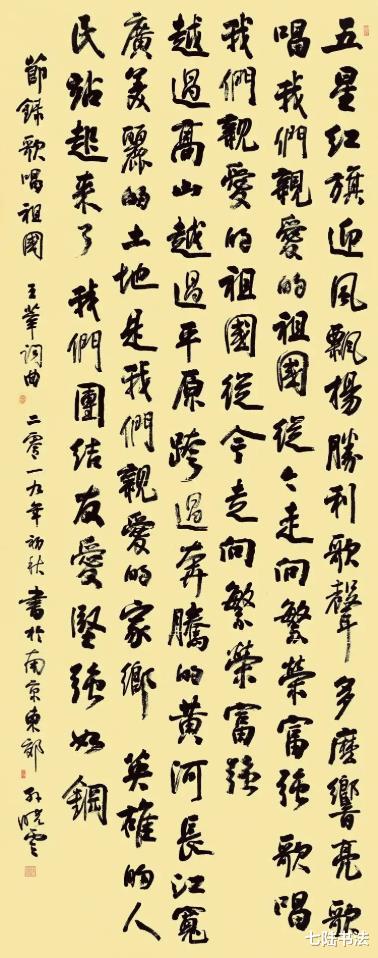 五星红旗迎风飘揚勝利歌聲多麽響亮歌
唱我們親愛的祖國從今走向繁榮富强歌唱
我們親愛的祖國從今走向繁榮富强
越過高山越過平原跨過奔騰的黄河長江寬
廣美麗的土地是我們親愛的家鄉 英雄的人
民站起来了 我們團結友愛堅强如鋼
節録歌唱祖國 王莘詞曲 二零一九年初秋 書於南京東郊 孙曉雲
七陆书法